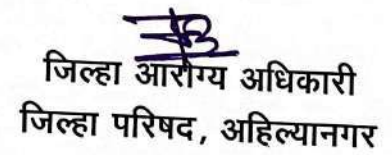 जिल्हा आरोग्य अधिकारी
जिल्हा परिषद, अहिल्यानगर